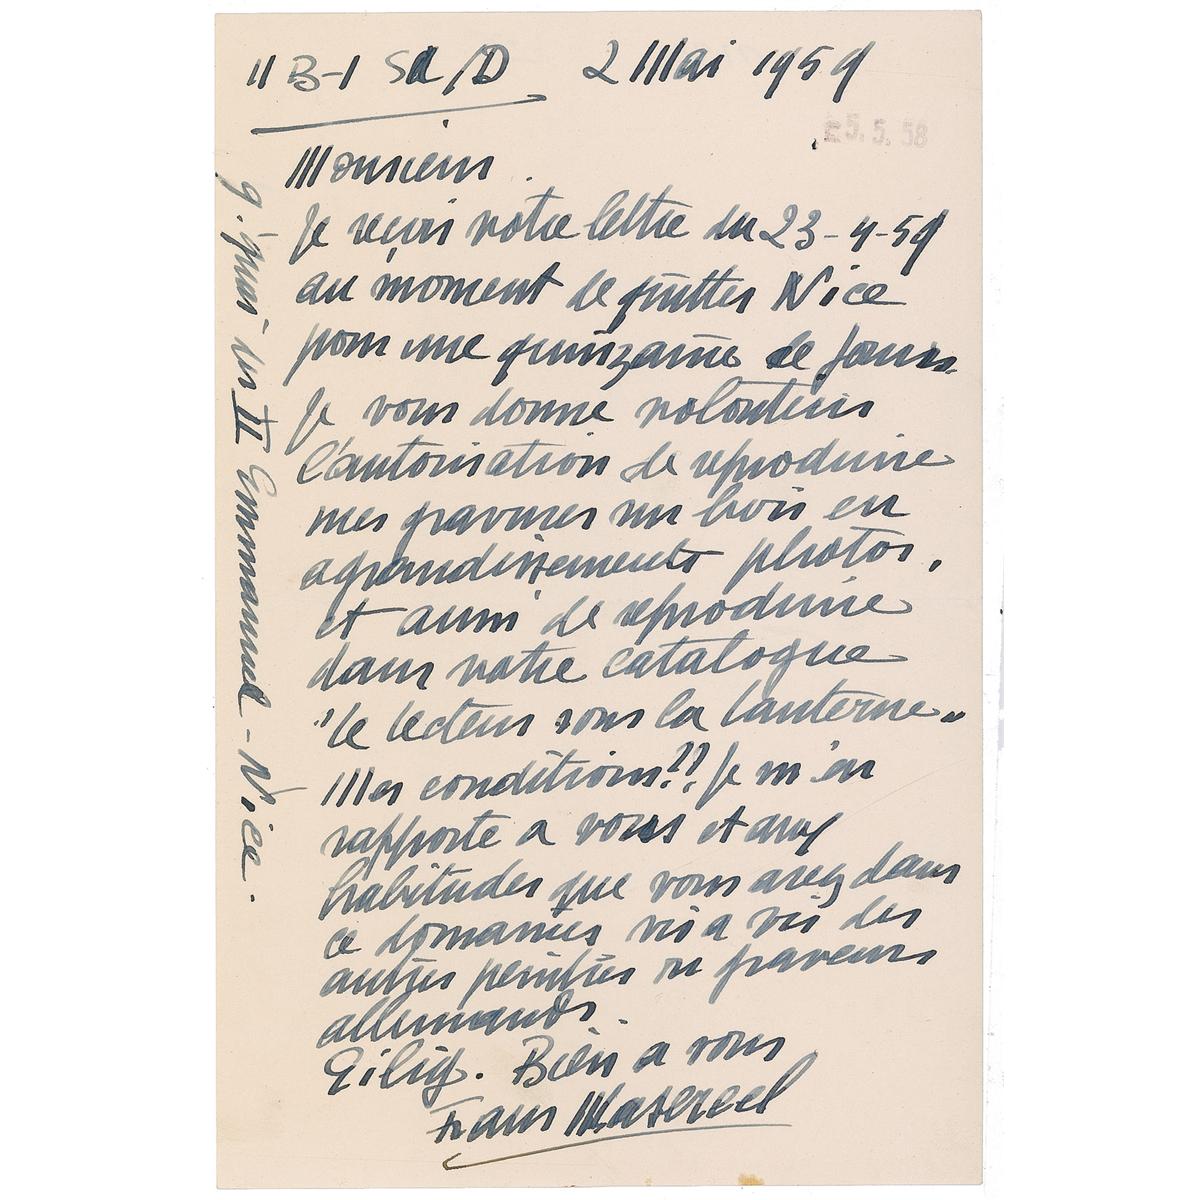 11 B-1 Sa/D 2 Mai 1959
E 5. 5. 58
Monsieur.
Je reçois votre lettre du 23-4-59
au moment de quitter Nice
pour une quinzaine de jours.
Je vous donne volontiers
l'autorisation de reproduire
mes gravures sur bois en
agrandissements photos,
et aussi de reproduire
dans votre catalogue
"le lecteur sous la lanterne"
Mes conditions?? Je m'en
rapporte a vous et aux
habitudes que vous avez dans
ce domaines vis a vis des
autres peintres ou graveurs
allemands.
Eilig. Bien a vous
Frans Masereel
9. quai II Emmanuel - Nice.